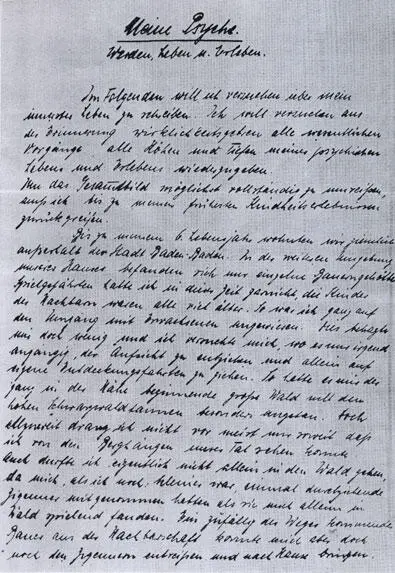 Meine Psyche.
Werden, Leben u. Erleben.
Im Folgenden will ich versuchen über mein
innerstes Leben zu schreiben. Ich will versuchen aus
der Erinnerung wirklichkeitsgetreu alle wesentlichen
Vorgänge alle Höhen und Tiefen meines psychischen
Lebens und Erlebens wiederzugeben.
Um das Gesamtbild möglichst vollständig zu umreißen,
muß ich bis zu meinen frühesten Kindheitserlebnissen
zurückgreifen.
Bis zu meinem 6. Lebensjahr wohnten wir ziemlich
außerhalb der Stadt Baden-Baden. In der weiteren Umgebung
unseres Hauses befanden sich nur einzelne Bauerngehöfte
Spielgefährten hatte ich in dieser Zeit garnicht, die Kinder
der Nachbarn waren alle viel älter. So war ich ganz auf
den Umgang mit Erwachsenen angewiesen. Dies behagte
mir doch wenig und ich versuchte mich, wo es nur irgend
angängig, der Aufsicht zu entziehen und allein auf
eigene Entdeckungsfahrten zu ziehen. So hatte es mir der
ganz in der Nähe beginnende große Wald mit den
hohen Schwarzwaldtannen besonders angetan. Doch
allzuweit drang ich nicht vor meist nur soweit daß
ich von den Berghängen unser Tal sehen konnte
Auch durfte ich eigentlich nicht allein in den Wald gehen,
da mich, als ich noch kleiner war, einmal durchziehende
Zigeuner mitgenommen hatten als sie mich allein im
Wald spielend fanden. Ein zufällig des Weges kommende
Bauer aus der Nachbarschaft konnte mich aber doch
noch den Zigeunern entreißen und nach Hause bringen.